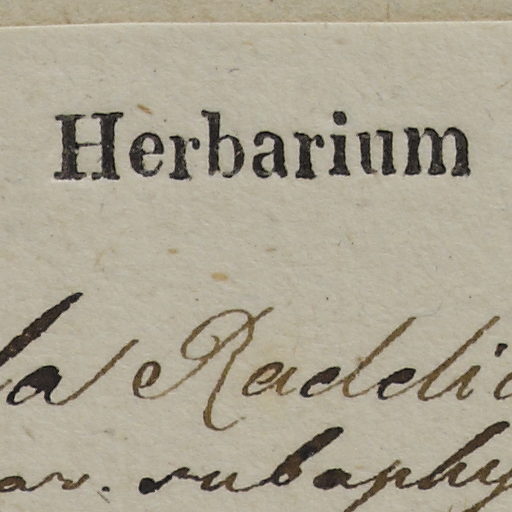 Herbarium
la Raddi
ar. subaphy